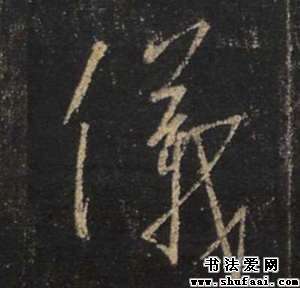 儀
书法爱网
www.shufaai.com